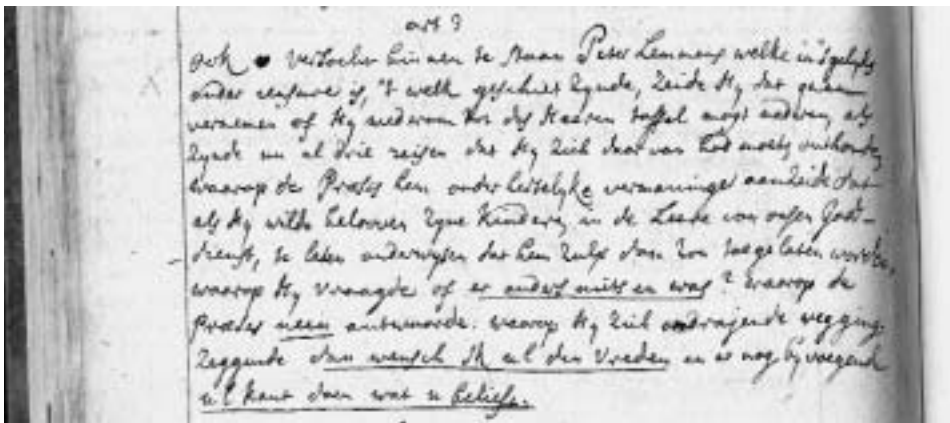 art 3
ook verzocht binnen te staan Peter Lemmens welke insgelyks
onder censure is, 't welk geschiet zynde, zeide Hy dat quam
vernemen of Hy wederom tot des Heeren taffel mogt naderen, als
zynde nu al drie reisen dat Hy zich daar van had moeten onthouden,
waarop de Preses hem onder hertelyke vermaninge aanzeide dat
als Hy wilde belooven zyne Kinderen in de Leere van onsen Gods-
dienst, te laten onderwysen dat hem zulx dan zou toegelaten worden,
waarop Hy vraagde of er anders niets en was? waarop de
Preses neen antwoorde. waarop Hy zich omdrajende wegging
zeggende dan wensch ik ul den Vreden en er nog byvoegende
ul kant doen wat u belieft.